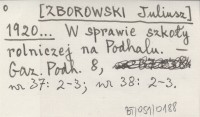 [ZBOROWSKI Juliusz]
1920... W sprawie szkoły
rolniczej na Podhalu. —
Gaz. Podh. 8,
nr 37: 2-3; nr 38: 2-3.
BT/051/0188